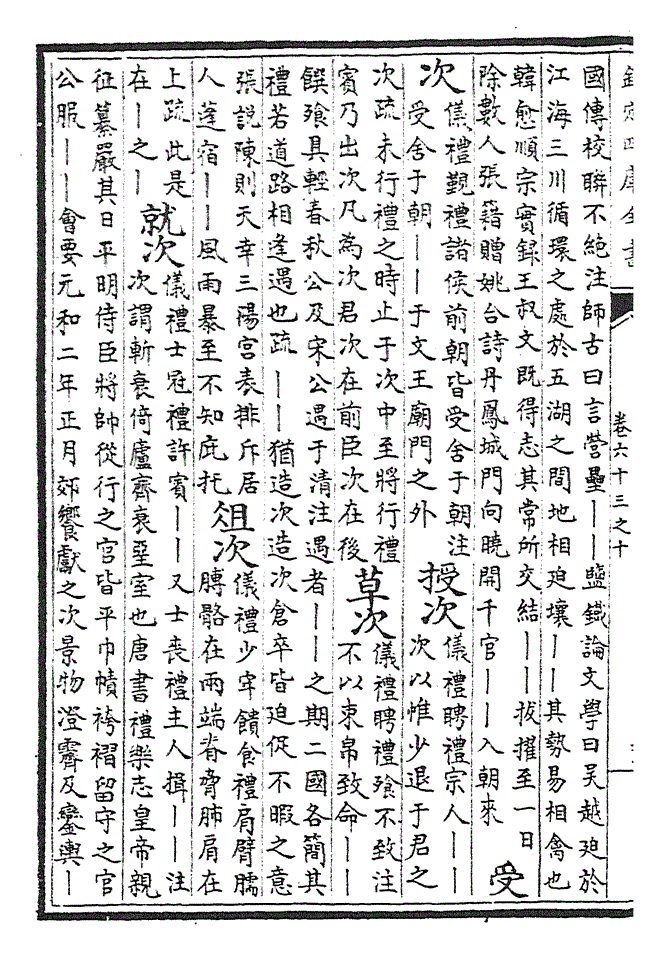 欽定四庫全書
卷六十三之十
國傳校聯不絶注師古曰言營壘丨丨鹽鐵論文學曰吳越廹於
江海三川循環之處於五湖之間地相廹壤丨丨其勢易相禽也
韓愈順宗實録王叔文既得志其常所交結丨丨拔擢至一日
除數人張籍贈姚合詩丹鳳城門向曉開千官丨丨入朝來
受
次
儀禮覲禮諸侯前朝皆受舍于朝注
受舍于朝丨丨于文王廟門之外
授次
儀禮聘禮宗人丨丨
次以帷少退于君之
次疏未行禮之時止于次中至將行禮
賓乃出次凡為次君次在前臣次在後
草次
儀禮聘禮飱不致注
不以束帛致命丨丨
饌飱具輕春秋公及宋公遇于清注遇者丨丨之期二國各簡其
禮若道路相逢遇也疏丨丨猶造次造次倉卒皆廹促不暇之意
張説陳則天幸三陽宫表排斥居
人蓬宿丨丨風雨暴至不知庇托
俎次
儀禮少牢饋食禮肩臂臑
膊骼在兩端脊脅肺肩在
上疏此是
在丨之丨
就次
儀禮士冠禮許賓丨丨又士喪禮主人揖丨丨注
次謂斬衰倚廬齊衰堊室也唐書禮樂志皇帝親
征纂嚴其日平明侍臣將帥從行之官皆平巾幘袴褶留守之官
公服丨丨會要元和二年正月郊饗獻之次景物澄霽及鑾輿丨